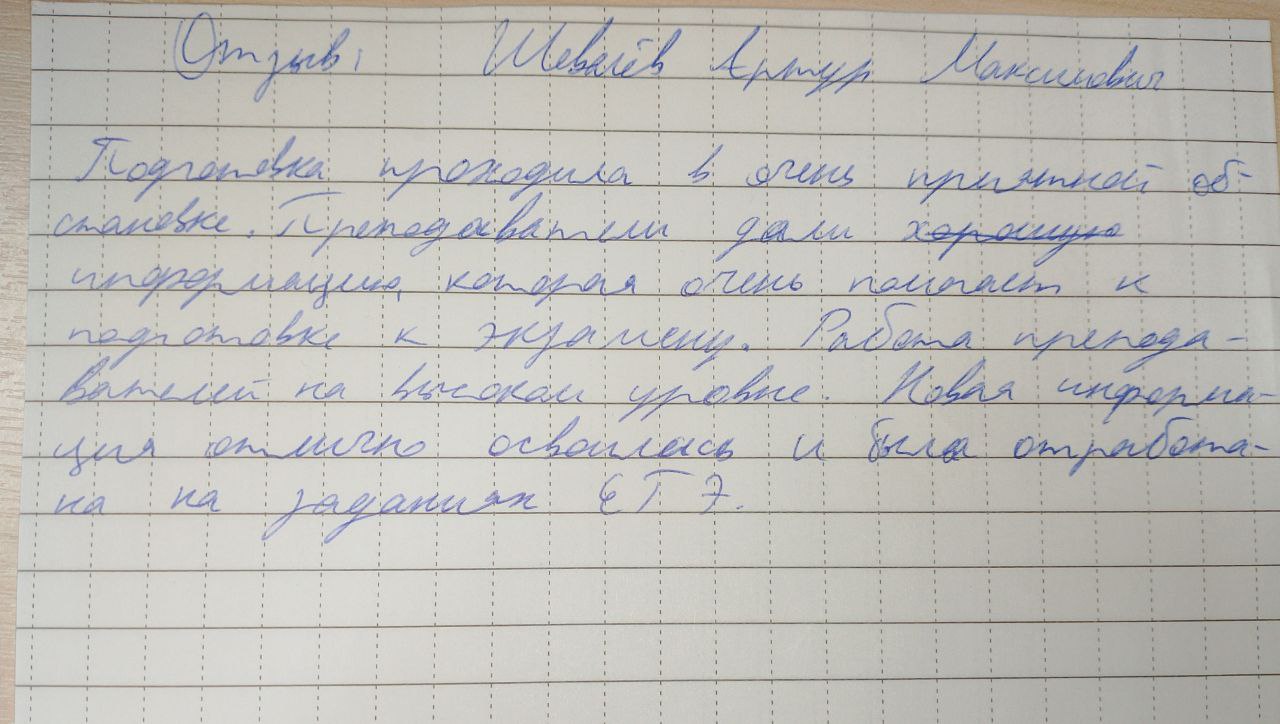 Отзыв: Шевалёв Артур Максимович
Подготовка проходила в очень приятной об-
становке. Преподаватели дали хорошую
информацию, которая очень помогает к
подготовке к экзамену. Работа препода-
вателей на высоком уровне. Новая информа-
ция отлично освоилась и была отработа-
на на заданиях ЕГЭ.